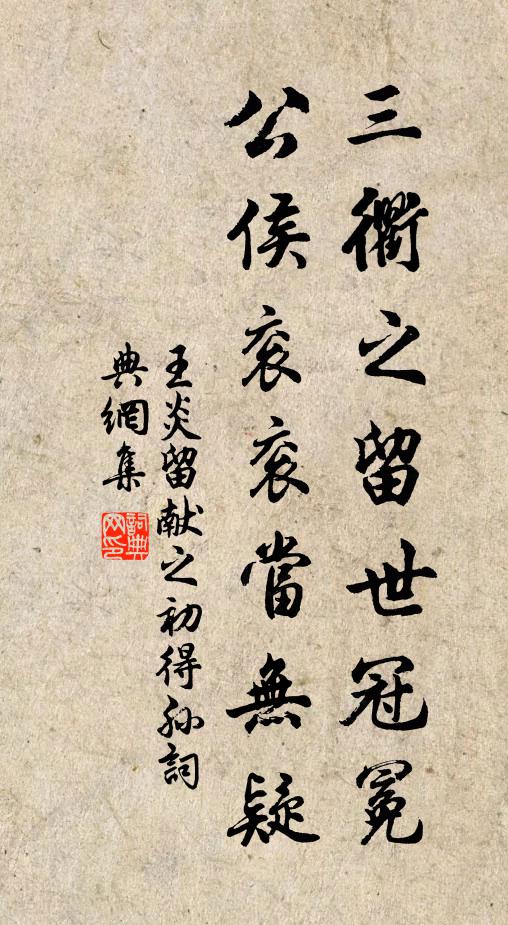 三衢之留世冠冕
公侯衮衮當無疑
王炎留献之初得孙詞
典網集
詞典网印